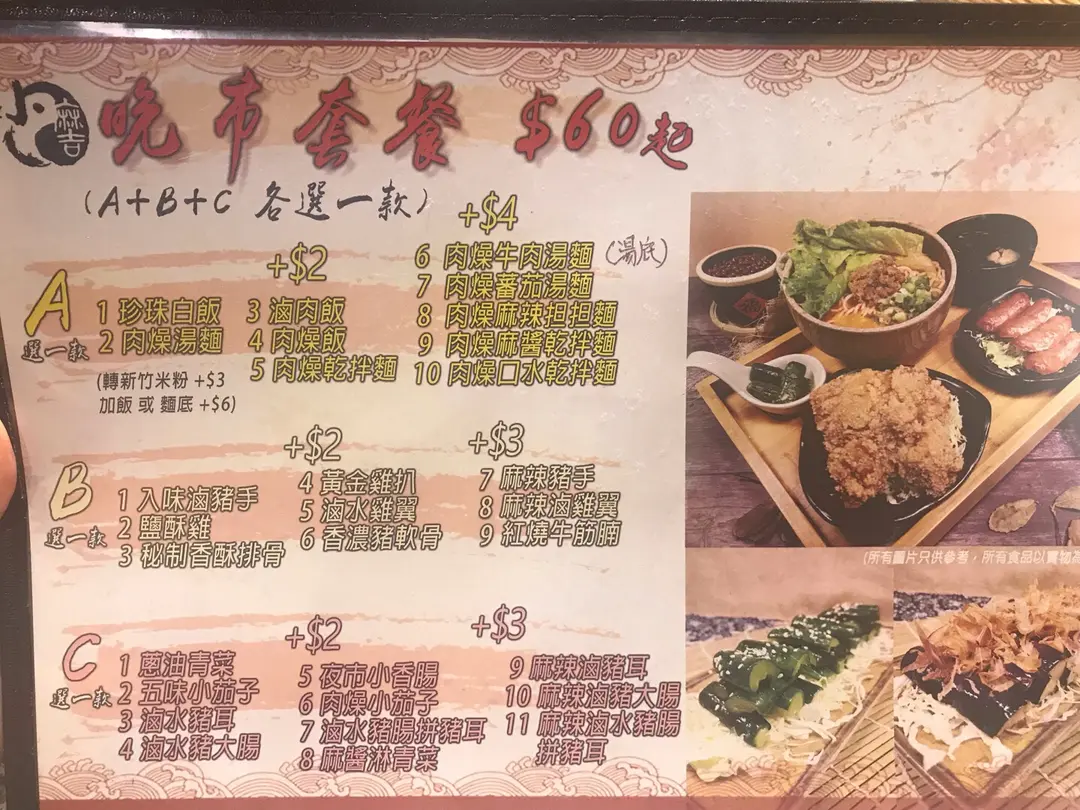 麻吉
晚市套餐 $60起
(A+B+C 各選一款)
A
選一款
1 珍珠白飯
2 肉燥湯麵
(轉新竹米粉 +$3
加飯 或 麵底 +$6)
+$2
3 滷肉飯
4 肉燥飯
5 肉燥乾拌麵
+$4
6 肉燥牛肉湯麵 (湯底)
7 肉燥蕃茄湯麵
8 肉燥麻辣担担麵
9 肉燥麻醬乾拌麵
10 肉燥口水乾拌麵
B
選一款
1 入味滷豬手
2 鹽酥雞
3 秘制香酥排骨
+$2
4 黃金雞扒
5 滷水雞翼
6 香濃豬軟骨
+$3
7 麻辣豬手
8 麻辣滷雞翼
9 紅燒牛筋腩
C
選一款
1 蔥油青菜
2 五味小茄子
3 滷水豬耳
4 滷水豬大腸
+$2
5 夜市小香腸
6 肉燥小茄子
7 滷水豬腸拼豬耳
8 麻醬淋青菜
+$3
9 麻辣滷豬耳
10 麻辣滷豬大腸
11 麻辣滷水豬腸
拼豬耳
(所有圖片只供參考，所有食品以實物為